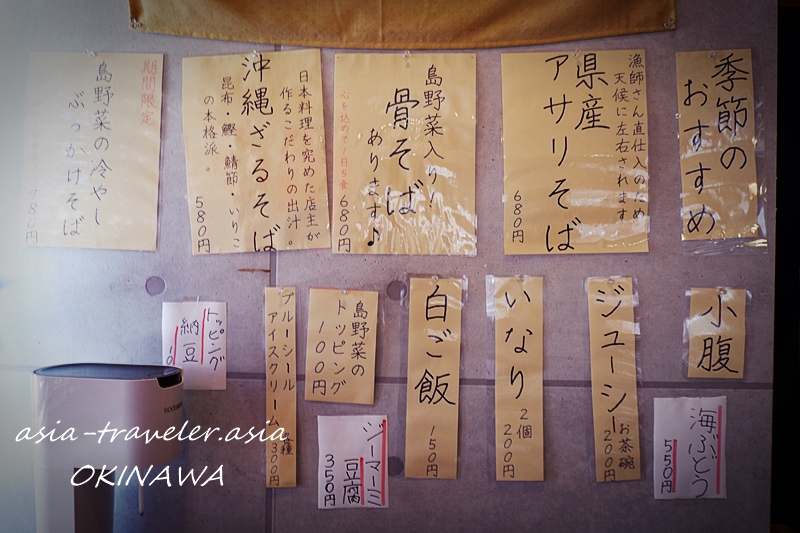 季節の
おすすめ
漁師さん直仕入のため
天候に左右されます
県産
アサリそば
680円
島野菜入り!
骨そば
あります♪
心を込めて1日5食
680円
日本料理を究めた店主が
作るこだわりの出汁。
沖縄ざるそば
昆布・鰹・鯖節・いりこ
の本格派。
580円
期間限定
島野菜の冷やし
ぶっかけそば
780円
小腹
海ぶどう
550円
ジューシー
お茶碗
200円
いなり
2個
200円
白ご飯
150円
ジーマーミ
豆腐
350円
島野菜の
トッピング
100円
ブルーシール
アイスクリーム
300円
トッピング
納豆
asia-traveler.asia
OKINAWA